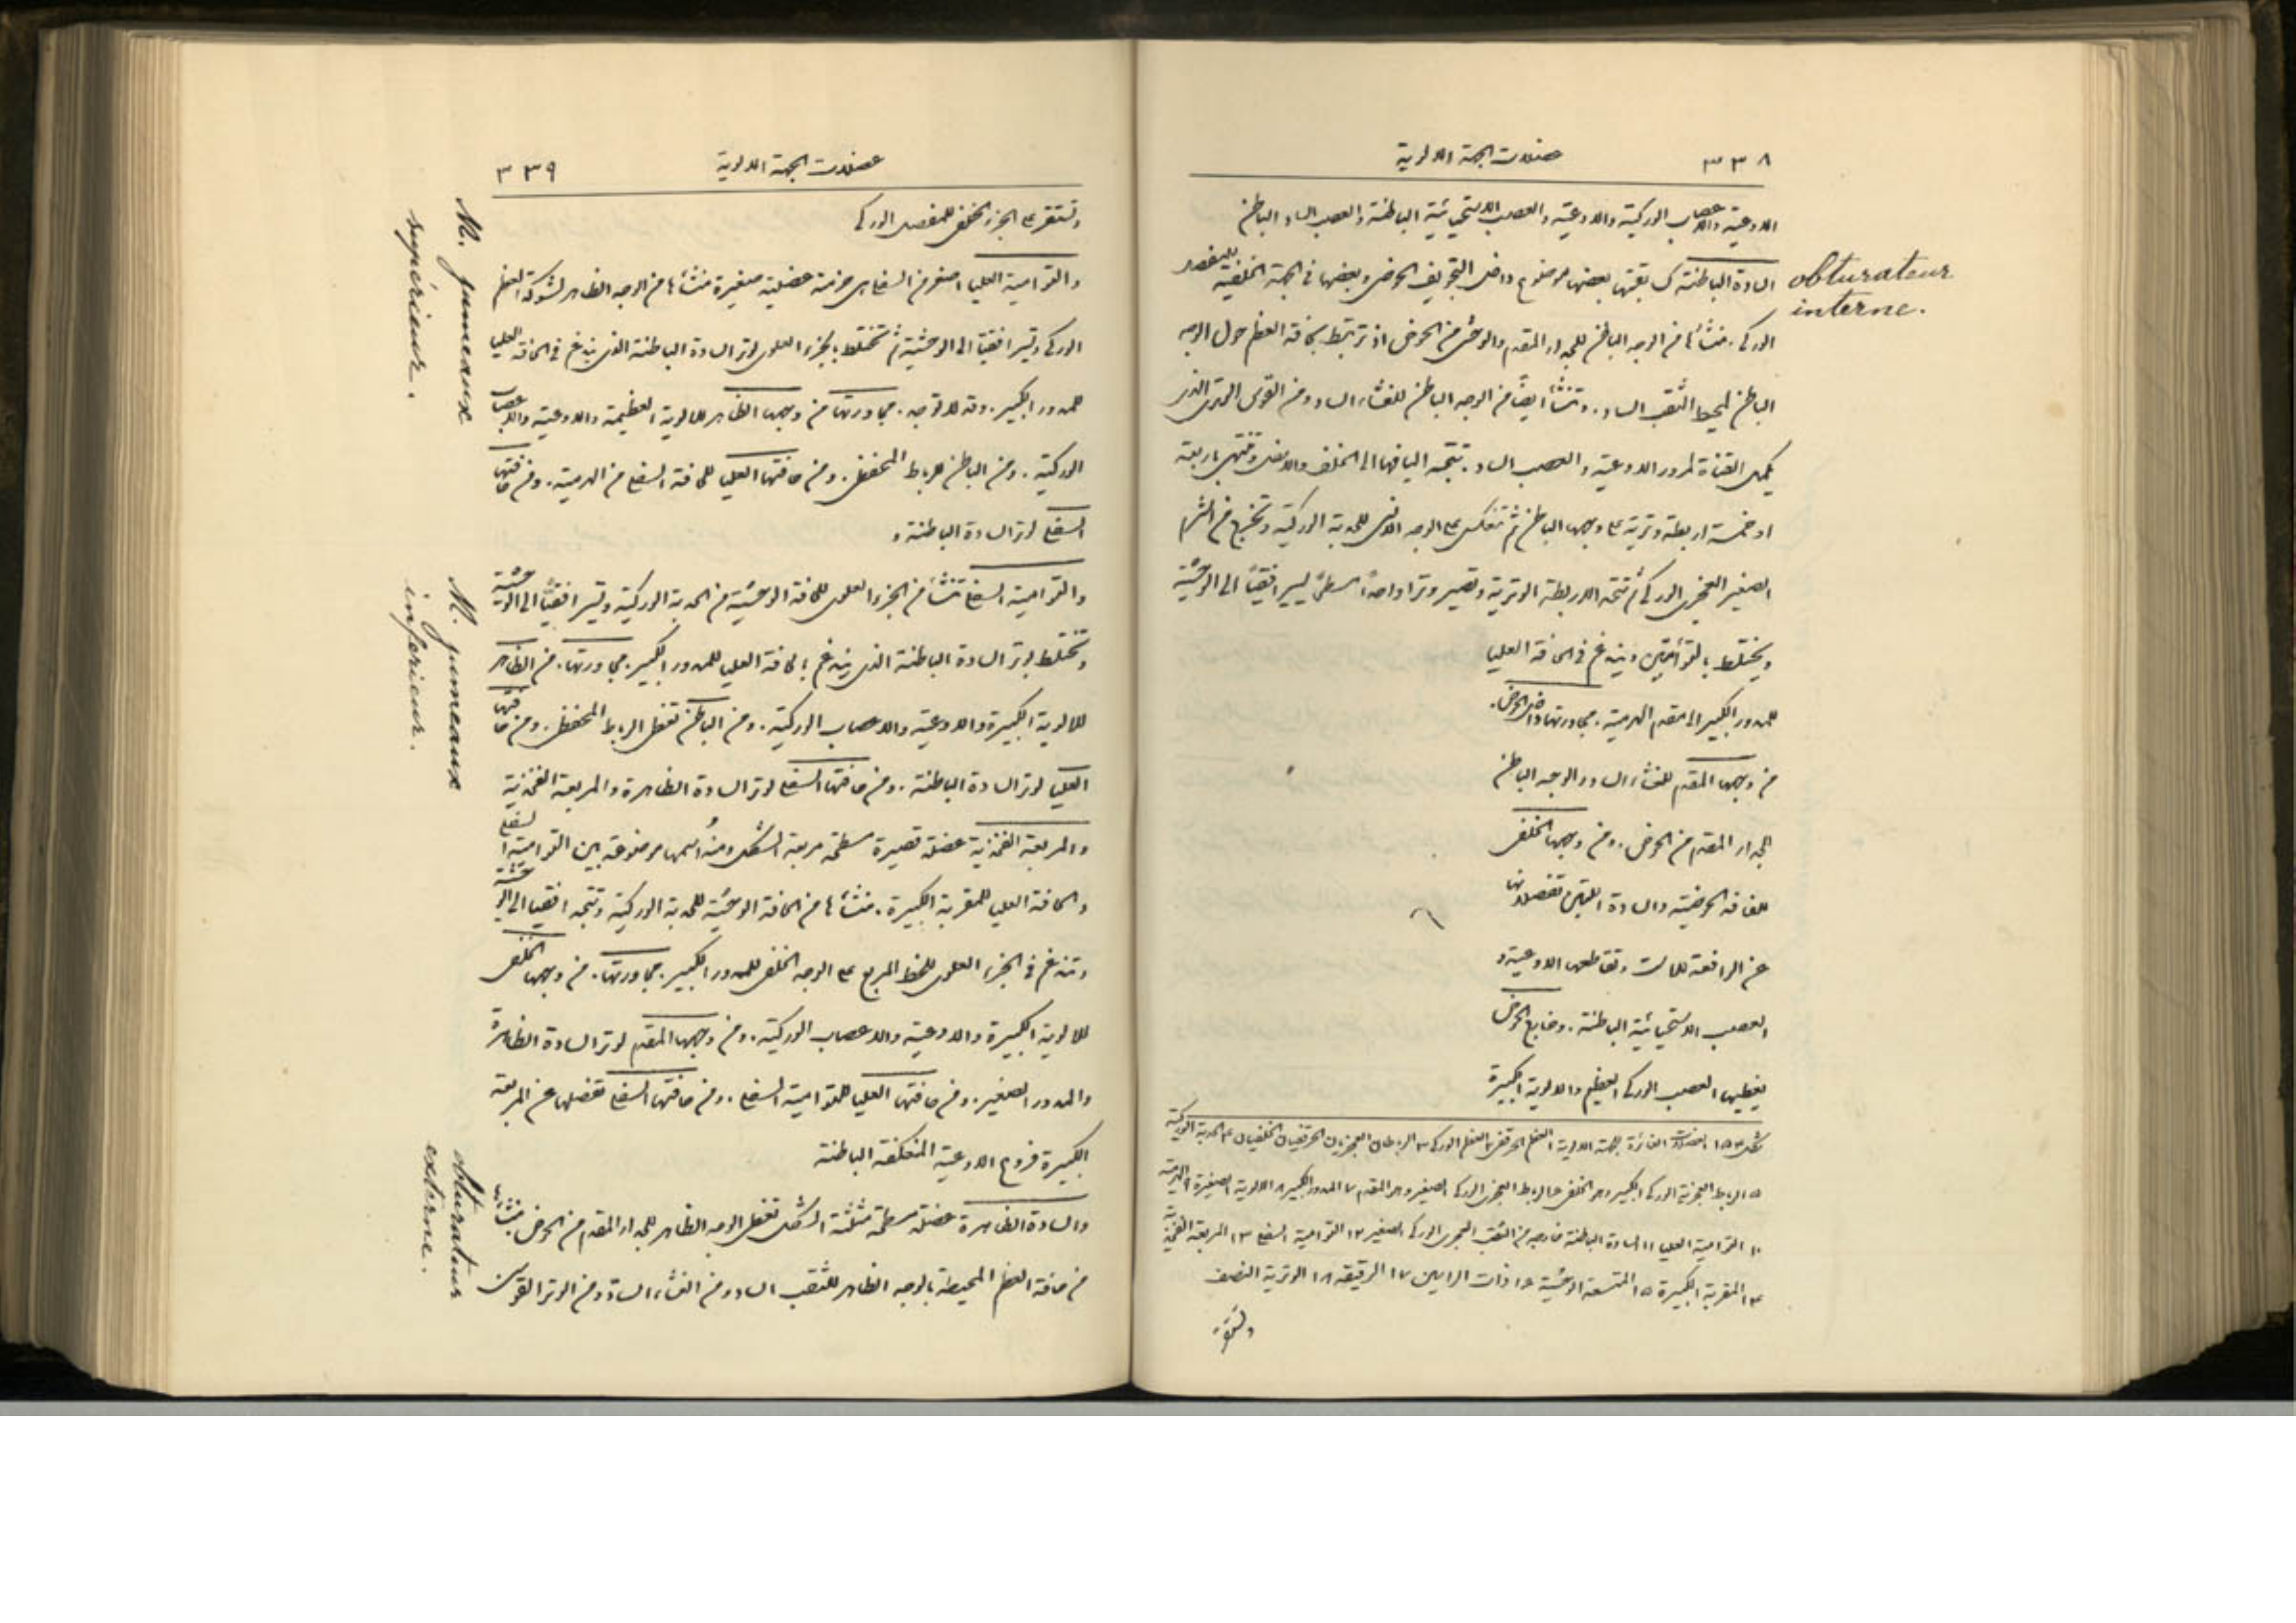 ٣٣٨ عضلات الجهة الالوية
الاوعية والاعصاب الوركية والاوعية والعصب الاستحيائية الباطنة والعصب الساد الباطن
obturateur interne.
السادة الباطنة بعضها موضوع داخل التجويف الحوضي وبعضها في الجهة الخلفية للمفصل
الوركي. منشأها من الوجه الباطن للجدار المقدم والوحشي من الحوض اذ ترتبط بحافة العظم حول الوجه
الباطن المحيط الثقب الساد. وتنشأ ايضًا من الوجه الباطن للغشاء الساد ومن القوس الوتري الذي
يكمل القناة لمرور الاوعية والعصب الساد. تتجه اليافها الى الخلف والاسفل وتنتهي باربعة
او خمسة اربطة وترية على وجهها الباطن ثم تنعكس على الوجه الانسي للحدبة الوركية وتخرج من الشرم
الصغير العجزي الوركي ثم تتحد الاربطة الوترية وتصير وترا واحدًا مسطحًا يسير افقيًا الى الوحشية
ويختلط بالتوأميتين ويندغم في الحافة العليا
للمدور الكبير الى مقدم الهرمية. مجاورتها داخل الحوض.
من وجهها المقدم للغشاء الساد والوجه الباطن
للجدار المقدم من الحوض. ومن وجهها الخلفي
للفافة الحوضية والسادة اللتين تفصلانها
عن الرافعة للاست وتقاطعها الاوعية و
العصب الاستحيائية الباطنة. وخارج الحوض
يغطيها العصب الوركي العظيم والالوية الكبيرة
شكل ١٥٣ العضلات الغائرة للجهة الالوية ١ العظم الحرقفي ٢ العظم الوركي ٣ الرباطان العجزيان الحرقفيان الخلفيان ٤ الحدبة الوركية
٥ الرباط العجزي الوركي الكبير وهو الخلفي ٦ الرباط العجزي الوركي الصغير وهو المقدم ٧ المدور الكبير ٨ الالوية الصغيرة ٩ الهرمية
١٠ التوامية العليا ١١ السادة الباطنة خارجة من الثقب العجزي الوركي الصغير ١٢ التوامية السفلى ١٣ المربعة الفخذية
١٤ المقربة الكبيرة ١٥ المتسعة الوحشية ١٦ ذات الراسين ١٧ الرقيقة ١٨ الوترية النصف
وتستقر
عضلات الجهة الالوية ٣٣٩
وتستقر على الجزء الخلفي للمفصل الوركي
M. jumeaux supérieur.
والتوامية العليا اصغر من السفلى هي حزمة عضلية صغيرة منشأها من الوجه الظاهر لشوكة العظم
الوركي وتسير افقيًا الى الوحشية ثم تختلط بالجزء العلوي لوتر السادة الباطنة الذي يندغم في الحافة العليا
للمدور الكبير. وقد لا توجد. مجاورتها من وجهها الظاهر للالوية العظيمة والاوعية والاعصاب
الوركية. ومن الباطن للرباط المحفظي. ومن حافتها العليا للحافة السفلى من الهرمية. ومن حافتها
السفلى لوتر السادة الباطنة و
M. jumeaux inferieur.
والتوامية السفلى تنشأ من الجزء العلوي للحافة الوحشية من الحدبة الوركية وتسير افقيًا الى الوحشية
وتختلط بوتر السادة الباطنة الذي يندغم بالحافة العليا للمدور الكبير. مجاورتها. من الظاهر
للالوية الكبيرة والاوعية والاعصاب الوركية. ومن الباطن تغطي الرباط المحفظي. ومن حافتها
العليا لوتر السادة الباطنة. ومن حافتها السفلى لوتر السادة الظاهرة والمربعة الفخذية
والمربعة الفخذية عضلة قصيرة مسطحة مربعة الشكل ومنه اسمها موضوعة بين التوامية السفلى
والحافة العليا للمقربة الكبيرة. منشأها من الحافة الوحشية للحدبة الوركية وتتجه افقيا الى الوحشية
وتندغم في الجزء العلوي للخط المربع على الوجه الخلفي للمدور الكبير. مجاورتها. من وجهها الخلفي
للالوية الكبيرة والاوعية والاعصاب الوركية. ومن وجهها المقدم لوتر السادة الظاهرة
والمدور الصغير. ومن حافتها العليا للتوامية السفلى. ومن حافتها السفلى تفصلها عن المربعة
الكبيرة فروع الاوعية المنعكفة الباطنة
obturateur externe.
والسادة الظاهرة عضلة مسطحة مثلثة الشكل تغطي الوجه الظاهر للجدار المقدم من الحوض. منشأها
من حافة العظم المحيطة بالوجه الظاهر للثقب الساد ومن الغشاء الساد ومن الوتر القوسي